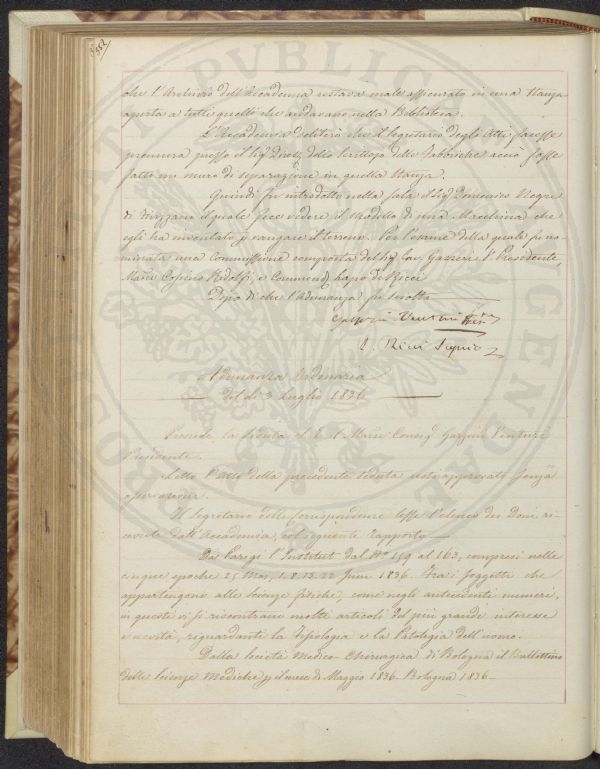 che l'Archivio dell'Accademia restava male assicurato in una stanza
aperta a tutti quelli che andavano nella Biblioteca.
L'Accademia deliberò che il Segretario degli Atti facesse
premura presso il Sig. Dirett. dello Scrittojo delle Fabbriche acciò fosse
fatto un muro di separazione in quella stanza.
Quindi fu introdotto nella sala il Sig. Domenico Negri
di il quale fece vedere il modello di una Macchina che
egli ha inventato p vangare il terreno. Per l'esame della quale fu no-
minata una Commissione composta del Sig. Cav. Gazzeri, il Presidente,
March. Cosimo Ridolfi, e Commend. Lapo de Ricci
Dopo di che l'Adunanza fu sciolta
Venturi
L. Ricci Segrio
Adunanza Ordinaria
del dì 3 Luglio 1836
Presiede la Seduta March. Consigr. Venturi
Presidente.
Letto l'Atto della precedente Seduta resta approvato senza
osservazioni.
Il Segretario delle Corrispondenze lesse l'elenco dei Doni ri-
cevuti dall'Accademia, col seguente rapporto
Da Parigi l'Institut dal No. 159 al 163, compresi nelle
cinque epoche 25 Mai, 1. 8. 15. 22 Juin 1836. Fra i soggetti che
appartengono alle Scienze fisiche, come negli antecedenti numeri,
in questi vi si riscontrano molti articoli del più grande interesse
e novità, riguardanti la Fisiologia e la Patologia dell'uomo.
Dalla Società Medico-Chirurgica di Bologna il Bullettino
delle Scienze Mediche p il mese di Maggio 1836. Bologna 1836
PUBLICAE
PROSPERITATI
AUGENDAE